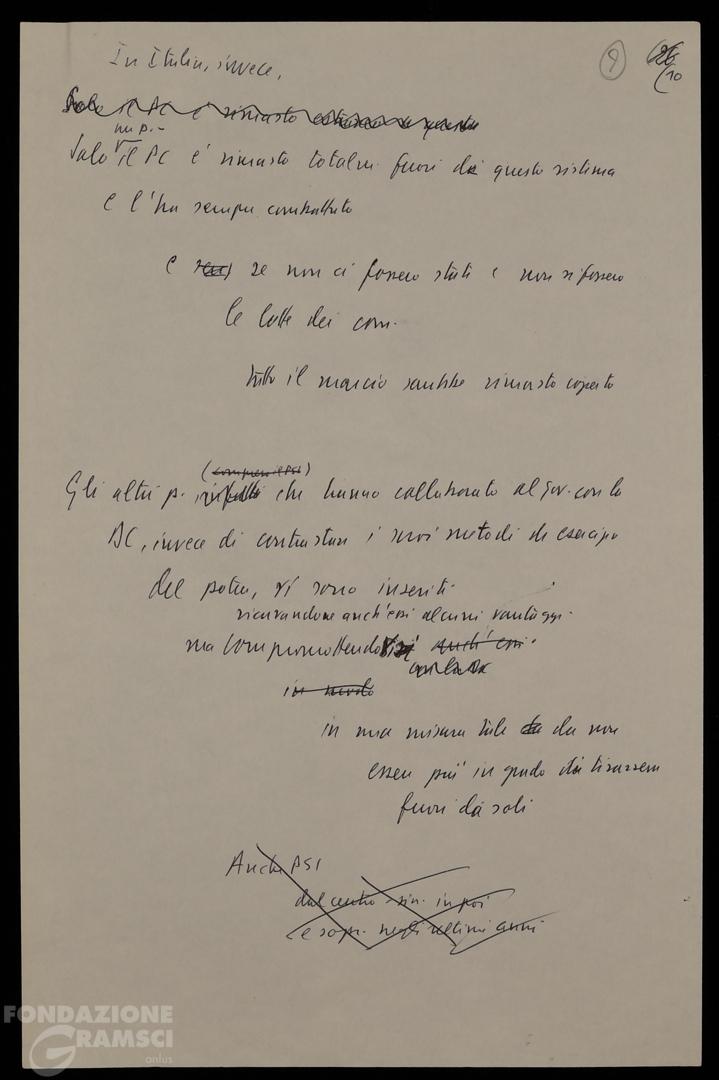 In Italia, invece,
9
26
10
Solo il PC è rimasto
un p.
Solo il PC è rimasto totalm. fuori da questo sistema
e l'ha sempre combattuto
e se non ci fossero stati e non vi fossero
le lotte dei com.
tutto il marcio sarebbe rimasto coperto
(compreso il PSI)
Gli altri p. che hanno collaborato al gov. con la
DC, invece di contrastare i suoi metodi di esercizio
del potere, vi sono inseriti
ricavandone anch'essi alcuni vantaggi
ma compromettendosi anch'essi
con la DC
in modo
in una misura tale da non
essere più in grado di tirarsene
fuori da soli
Anche PSI
dal centro-sin. in poi
e sopr. negli ultimi anni
FONDAZIONE
GRAMSCI
onlus